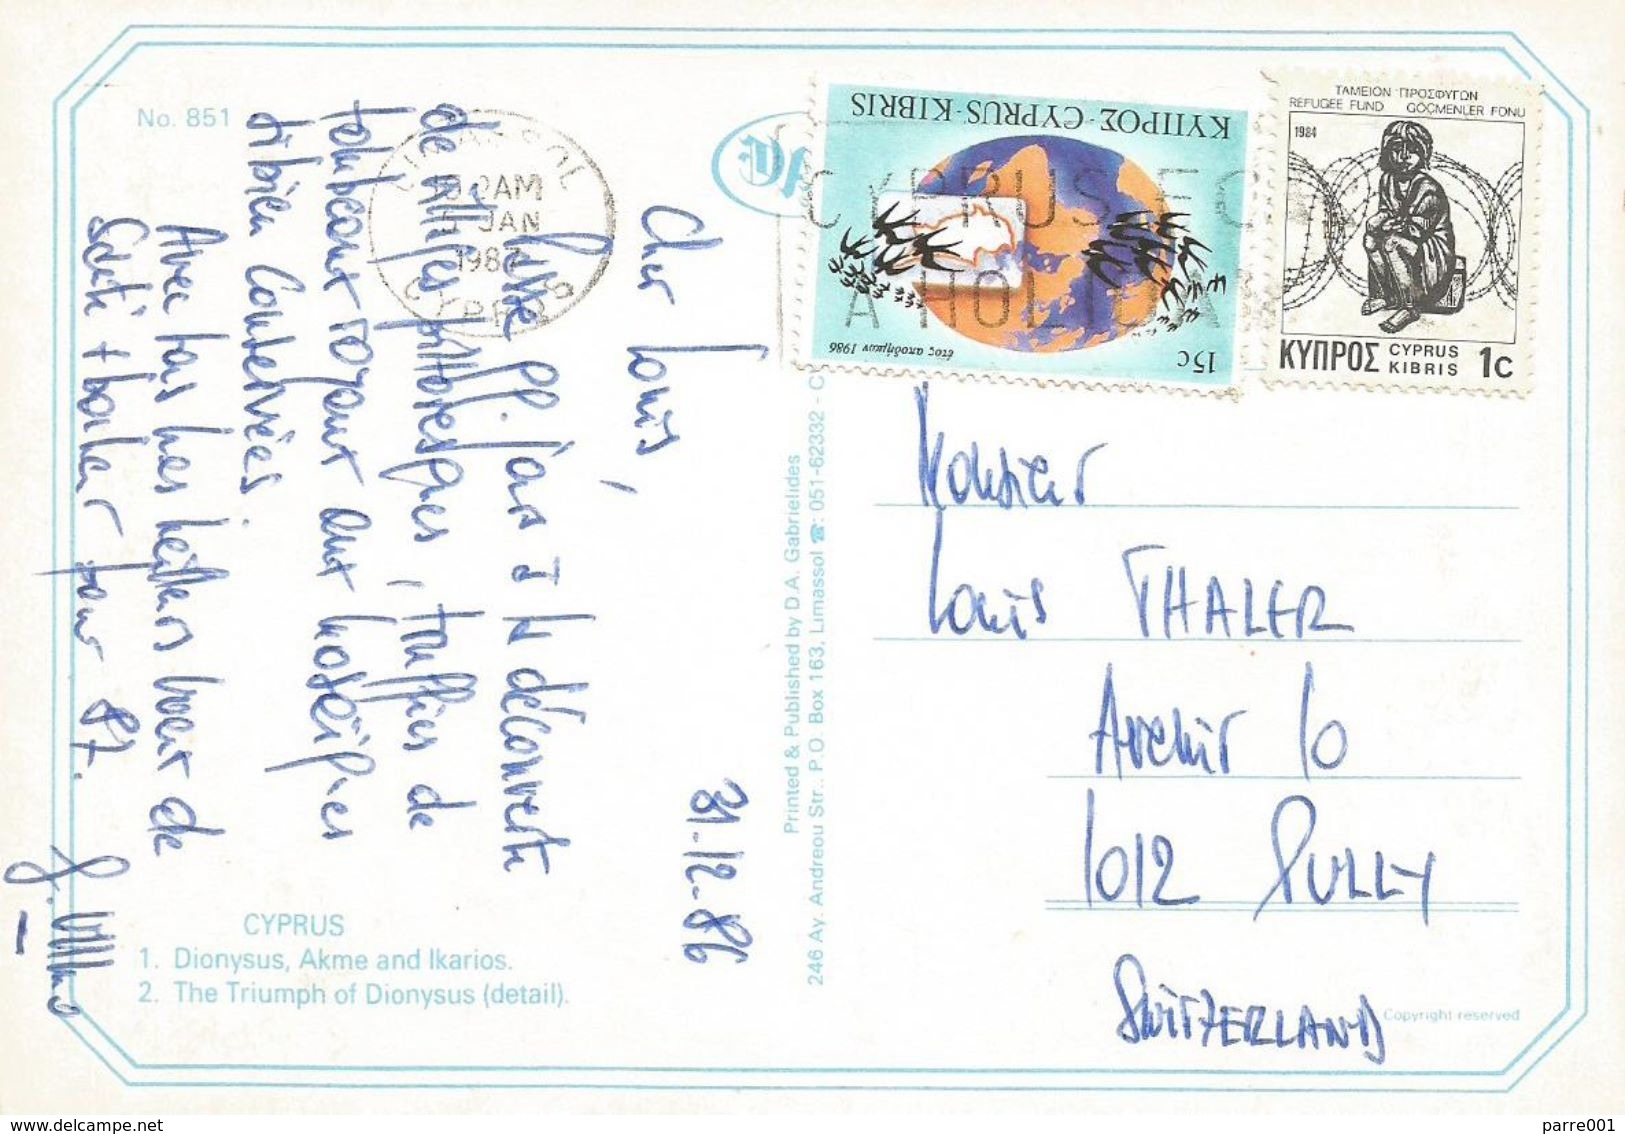 No. 851
LIMASSOL
JAN
CYPRUS
CYPRUS FOR
A HOLIDAY
ΚΥΠΡΟΣ·CYPRUS·KIBRIS
έτος αποδήμων 1986
15c
ΤΑΜΕΙΟΝ ΠΡΟΣΦΥΓΩΝ
REFUGEE FUND GÖÇMENLER FONU
1984
ΚΥΠΡΟΣ CYPRUS
KIBRIS 1c
31-12-86
Cher Louis,
Passé qq. jours à la découverte
de villages pittoresques, truffés de
tombeaux royaux aux mosaïques
si bien conservées.
Avec tous mes meilleurs voeux de
santé + bonheur pour 87.
Printed & Published by D.A. Gabrielides
246 Ay. Andreou Str., P.O. Box 163, Limassol ☎: 051-62332 - C
CYPRUS
1. Dionysus, Akme and Ikarios.
2. The Triumph of Dionysus (detail).
Monsieur
Louis THALER
Avenir 10
1012 PULLY
SWITZERLAND
Copyright reserved
delcampe.net
parre001